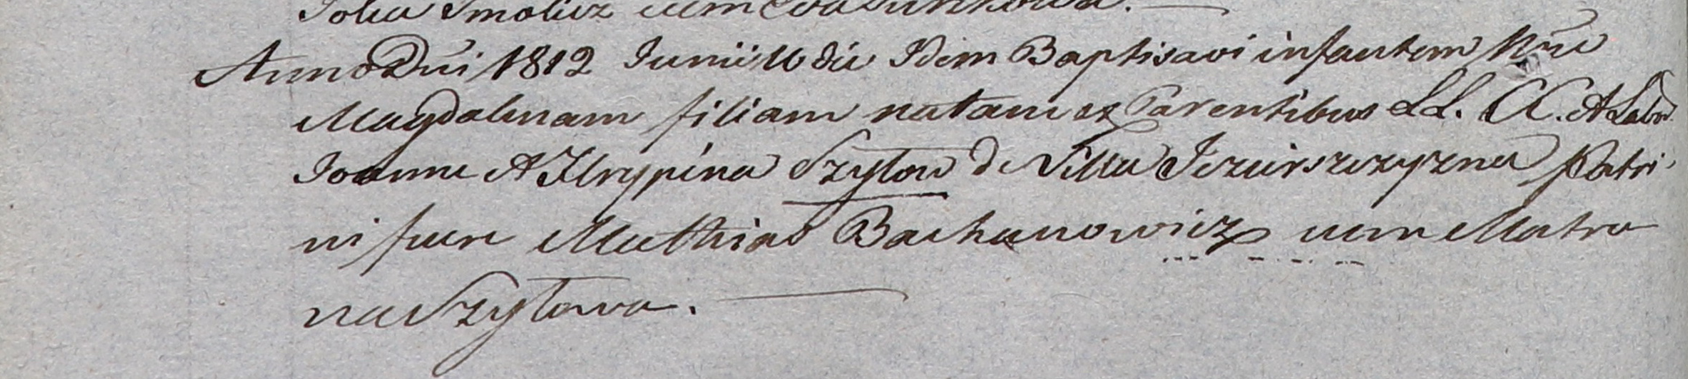 Smolicz cum Eva
Anno Dni 1812 Junii 16 die Idem Baptisavi infantem Nõe
Magdalenam filiam natam ex Parentibus LL. CC. A Labor.
Joanne A Hrypina Szyłow de Villa Jeziorszczyzna Patri
ni fuere Mathias Bachanowicz cum Matro
na Szyłowa.